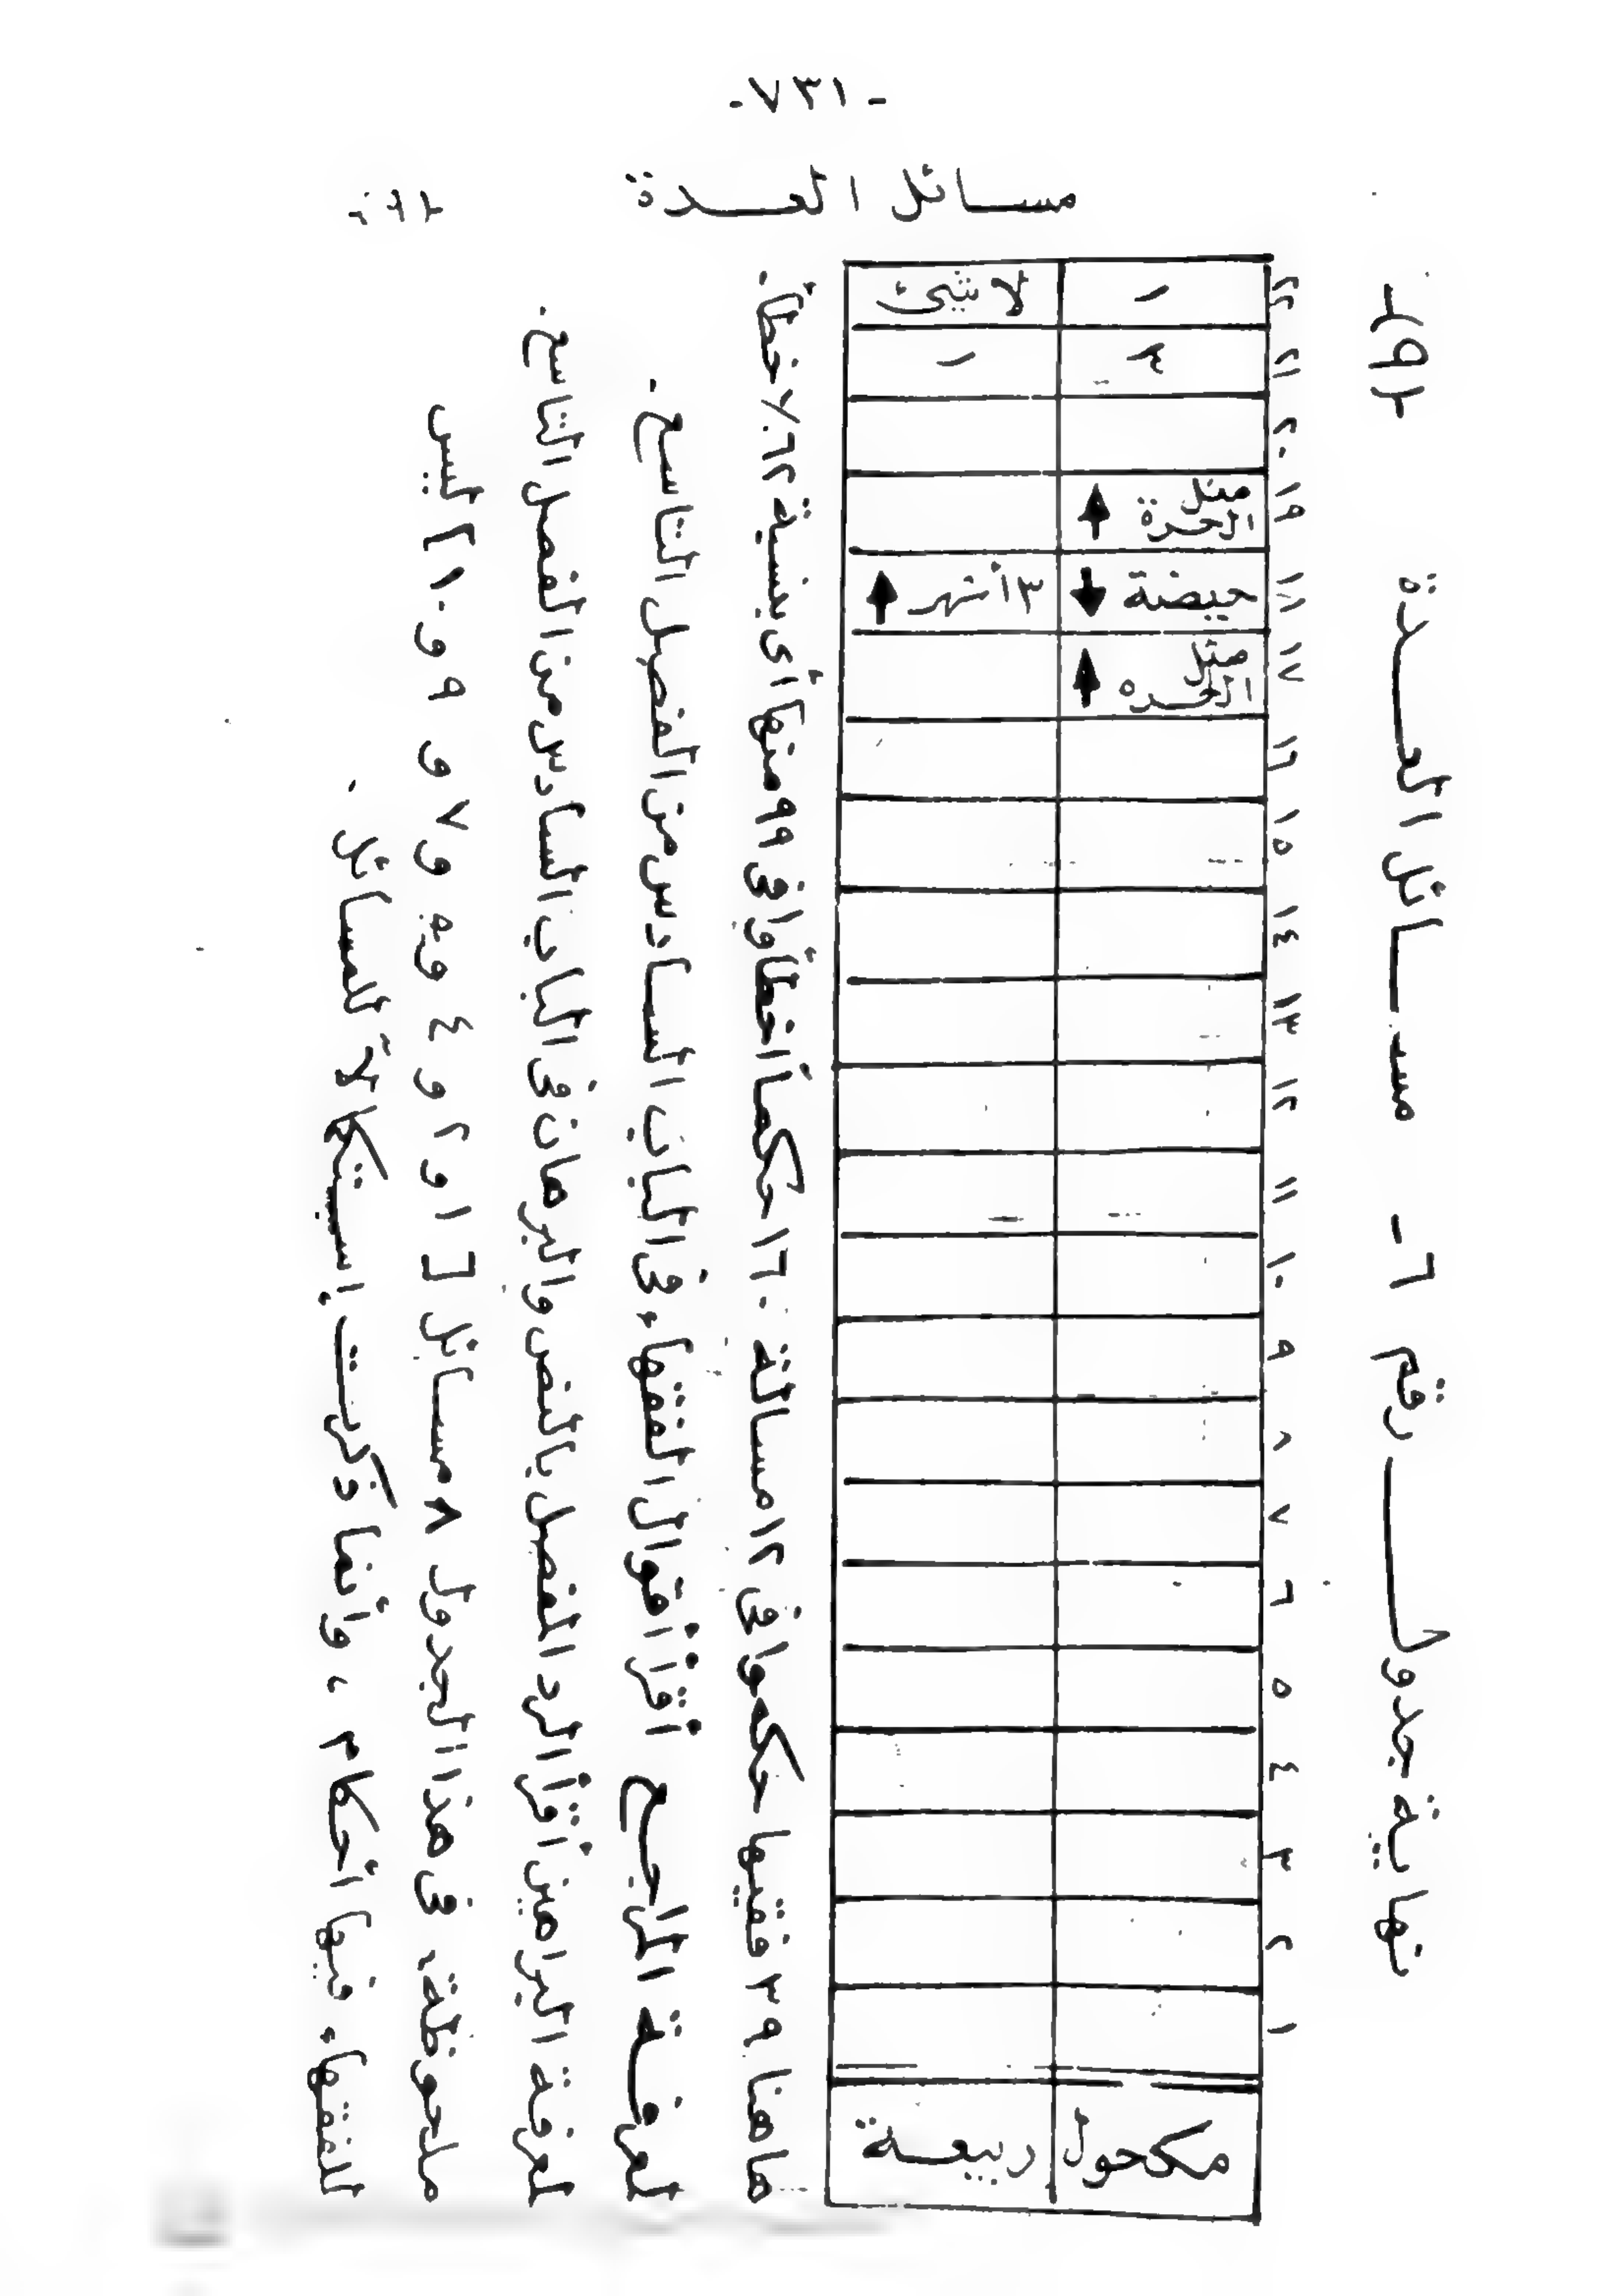 -١٣٧-
مســائل العــدة
نهاية جدول رقم ٦ - مســائل العــدة
١ ٢ ٣ ٤ ٥ ٦ ٧ ٨ ٩ ١٠ ١١ ١٢ ١٣ ١٤ ١٥ ١٦ ١٧ ١٨ ١٩ ٢٠ ٢١ ٢٢
مكحول مثل الحرة ↑ حيضة ↓ مثل الحرة ↑ ٣ ١
ربيعــة ٣ أشهر ↑ ١ لا شئ
هاهنا ٣٩ فقيها حكموا فى ١٢ مسالة ١٦٠ حكما أخطأوا فى ٩٩ منها أى بنسبة ٦٢٪ خطأ.
لمعرفــة المراجـع أقرأ أقوال الفقهاء فى الباب السادس من الفصل التاسع.
لمعرفة البراهين أقرأ الرد المفصل بالنص والبرهان فى الباب السادس من الفصل التاسع.
ملحوظة: فى هذا الجدول ٨ مسائل [ ١ و ٢ و ٤ و ٥ و ٧ و ٩ و ١٠ ] ليس
للفقهاء فيها أحكام ، وأنما ذكرت إستكمالا للمسائل .